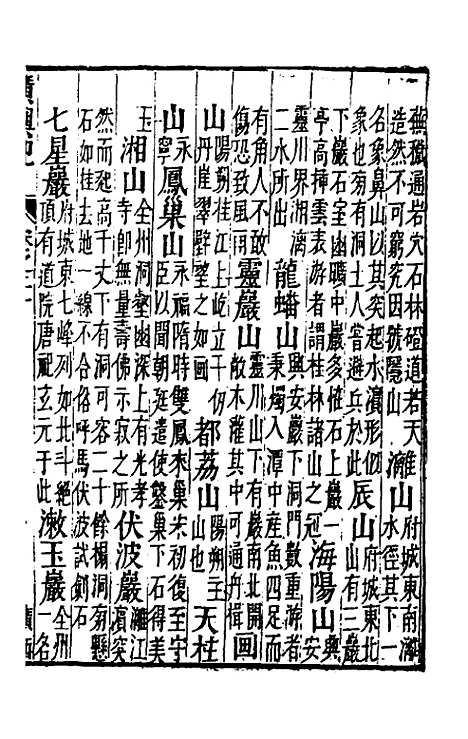 通岩穴石林磴道若天造然不可窮究因號隱山 灕山 府城東南灕水徑其下一
名象鼻山以其突起水濱形似象也旁有洞土人嘗避兵於此 辰山 府城東北山有三巖
下巖石室幽曠中巖多怪石上巖一亭高揷雲表游者謂桂林諸山之冠 海陽山 興安
靈川界湘灕二水所出 龍蟠山 興安巖下洞門數重游者秉燭入潭中產魚四足而
有角人不敢傷恐致風雨 靈巖山 靈川山下有巖南北開敞水灌其中可通舟楫 畫
山 陽朔桂江上屹立千仞丹崖翠壁望之如圖 都荔山 陽朔主山也 天柱
山 永寧 鳳巢山 永福隋時雙鳳來巢宋初復至守臣以聞朝廷遣使鑿下石得美
玉 湘山 全州洞壑幽深上有光孝寺即無量壽佛示寂之所 伏波巖 灕江濱突
然而起高千丈下有洞可容二十餘榻洞旁懸石如柱去地一線不合俗呼馬伏波試劍石
七星巖 府城東七峰列如北斗絕頂有道院唐祀玄元于此 漱玉巖 全州一名
廣輿記